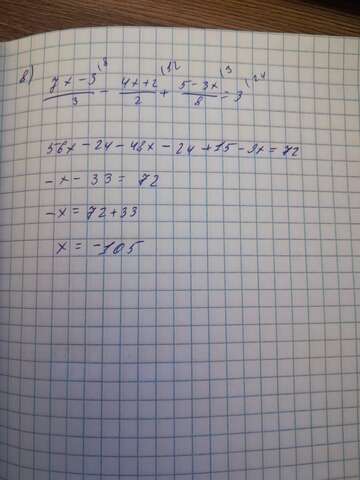 в) (7x - 3)/3 \8 - (4x + 2)/2 \12 + (5 - 3x)/8 \3 = 3 \24
56x - 24 - 48x - 24 + 15 - 9x = 72
-x - 33 = 72
-x = 72 + 33
x = -105